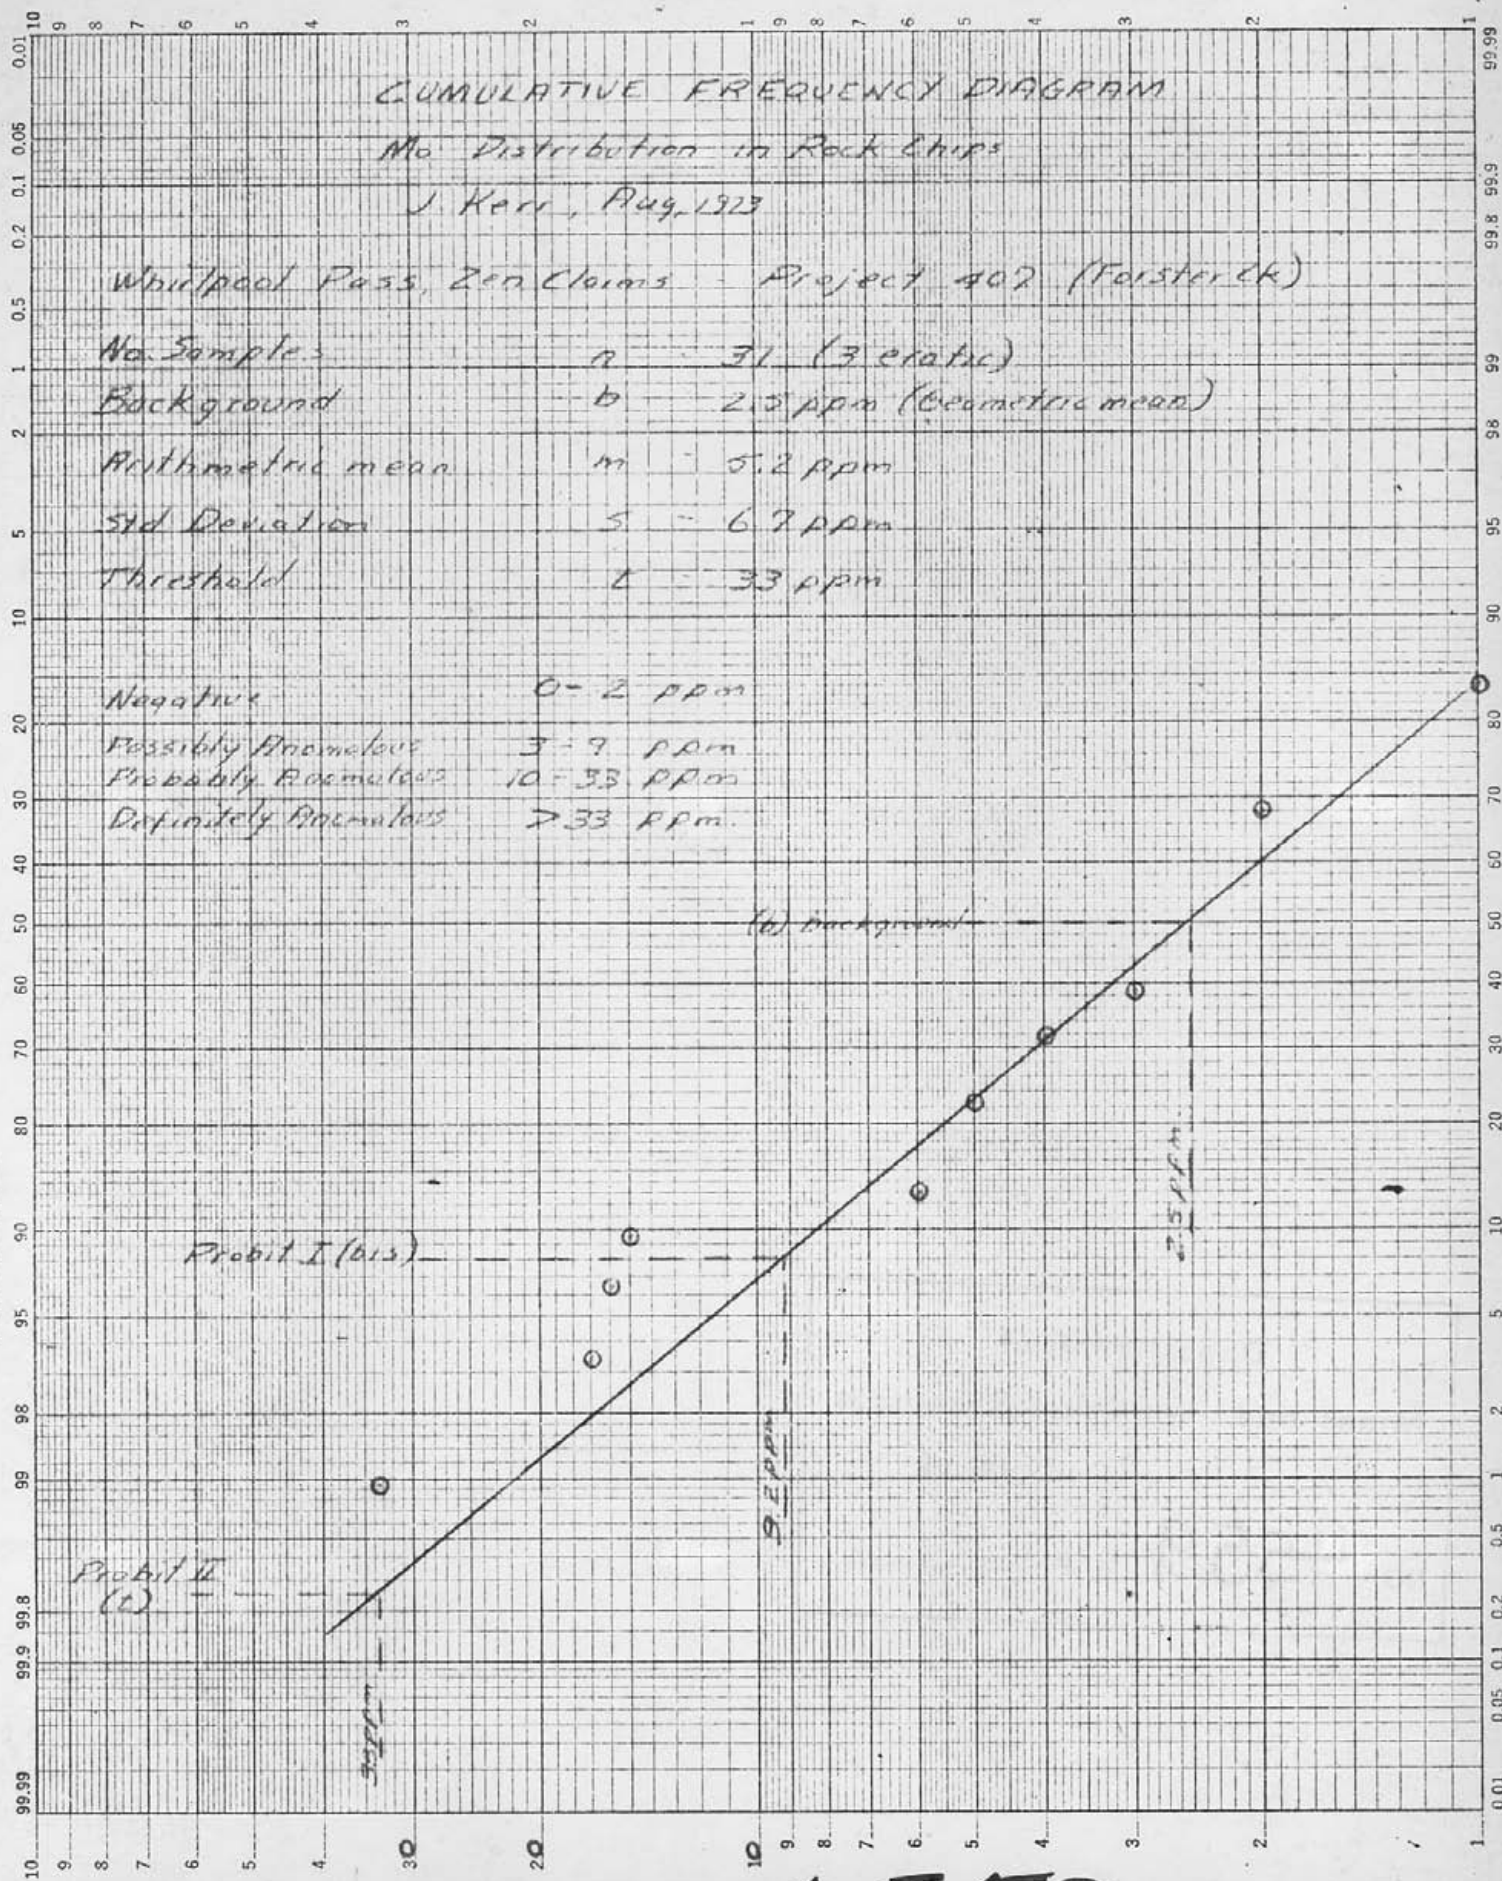 10 9 8 7 6 5 4 3 2 1 9 8 7 6 5 4 3 2 1
CUMULATIVE FREQUENCY DIAGRAM
Mo Distribution in Rock Chips
J Kerr, Aug, 1973
Whirlpool Pass, Zen Claims - Project 407 (Forster Ck)
No. Samples n - 31 (3 eratic)
Background b 2.5 ppm (Geometric mean)
Arithmetric mean m - 5.2 ppm
Std Deviation s - 6.7 ppm
Threshold t - 33 ppm
Negative 0-2 ppm
Possibly Anomalous 3-9 ppm
Probably Anomalous 10-33 ppm
Definitely Anomalous >33 ppm.
(b) background
2.5 ppm
Probit I (bis)
9.2 ppm
Probit II
(t)
0.01 0.05 0.1 0.2 0.5 1 2 5 10 20 30 40 50 60 70 80 90 95 98 99 99.8 99.9 99.99
99.99 99.9 99.8 99 98 95 90 80 70 60 50 40 30 20 10 5 2 1 0.5 0.2 0.1 0.05 0.01
10 9 8 7 6 5 4 30 20 10 9 8 7 6 5 4 3 2 1